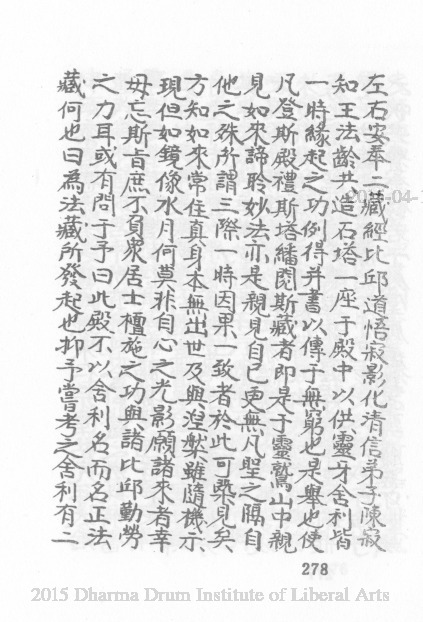 左右安奉二藏經比邱道悟寂影化清信弟子陳寂
知王法齡共造石塔一座于殿中以供靈牙舍利皆
一時緣起之功例得并書以傳于無窮也是舉也使
凡登斯殿禮斯塔繙閱斯藏者即是于靈鷲山中親
見如來諦聆妙法亦是親見自己更無凡聖之隔自
他之殊所謂三際一時因果一致者於此可槩見矣
方知如來常住真身本無出世及與涅槃雖隨機示
現但如鏡像水月何莫非自心之光影願諸來者幸
毋忘斯旨庶不負眾居士檀施之功與諸比邱勤勞
之力耳或有問于予曰此殿不以舍利名而名正法
藏何也曰為法藏所發起也抑予嘗考之舍利有二
278
2015 Dharma Drum Institute of Liberal Arts